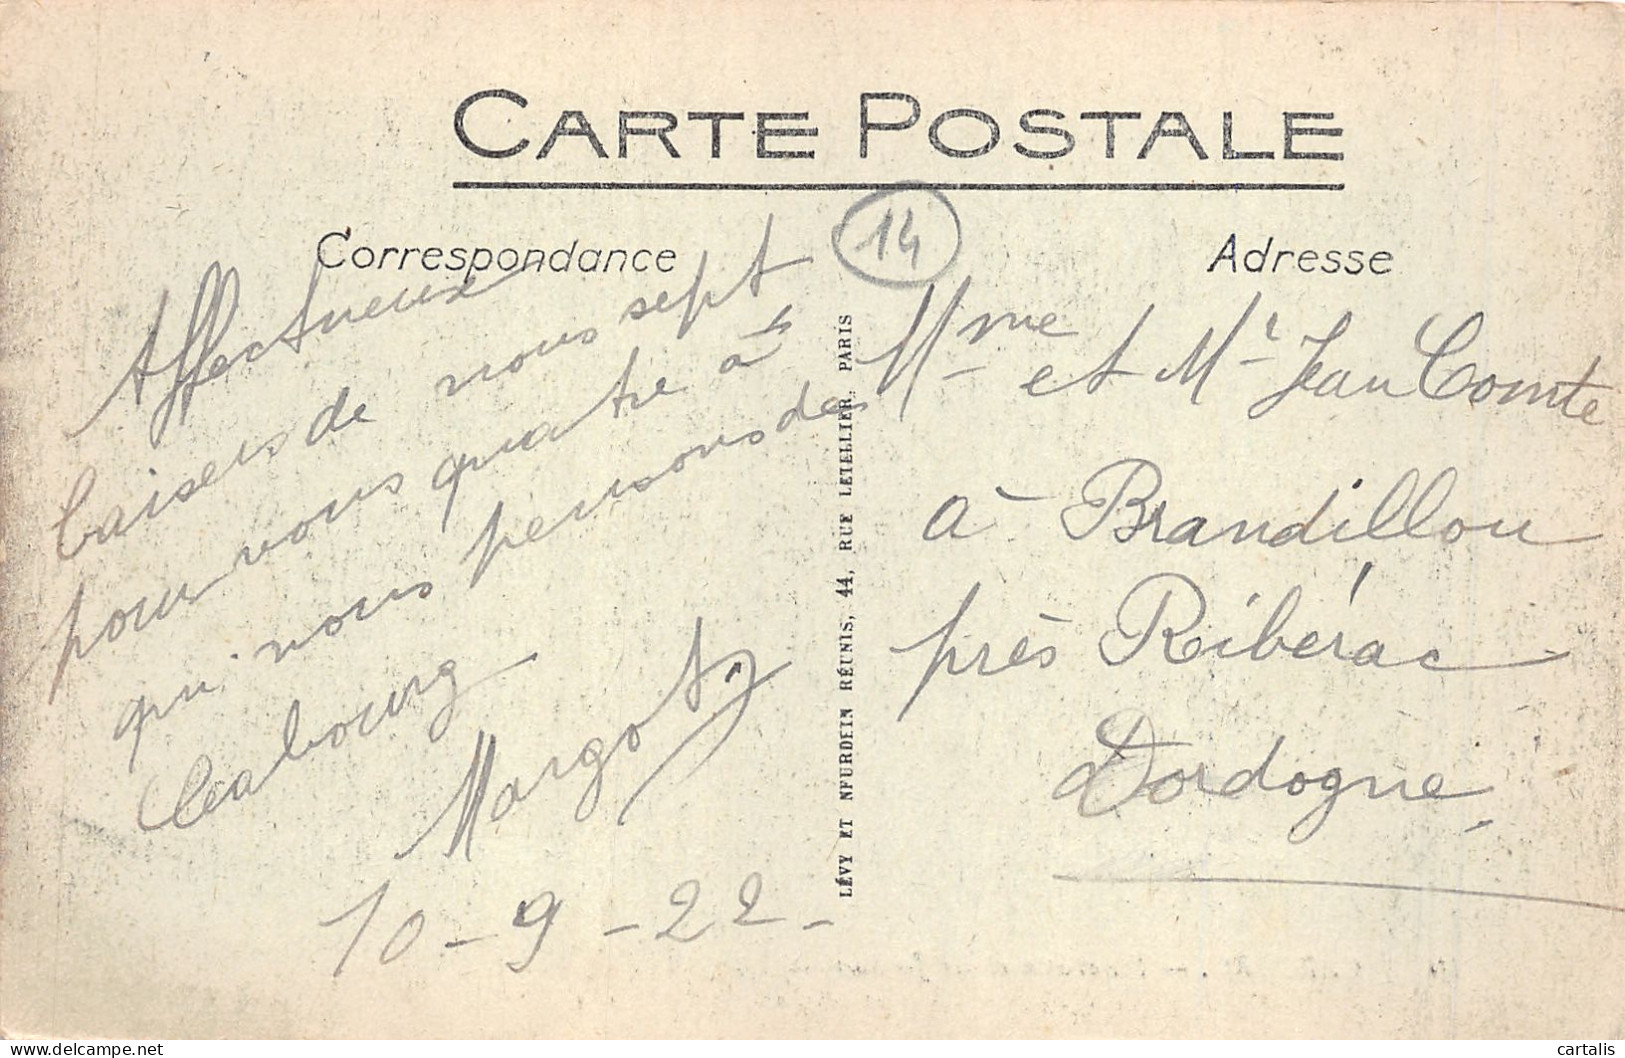 CARTE POSTALE
Correspondance
Adresse
14
Affectueux
baisers de nous sept
pour vous quatre à
qui nous pensons de
Cabourg
Margot
10-9-22-
LÉVY ET NEURDEIN RÉUNIS, 44, RUE LETELLIER, PARIS
Mme et Mr Jean Comte
à Brandillou
près Ribérac
Dordogne
delcampe.net
cartalis